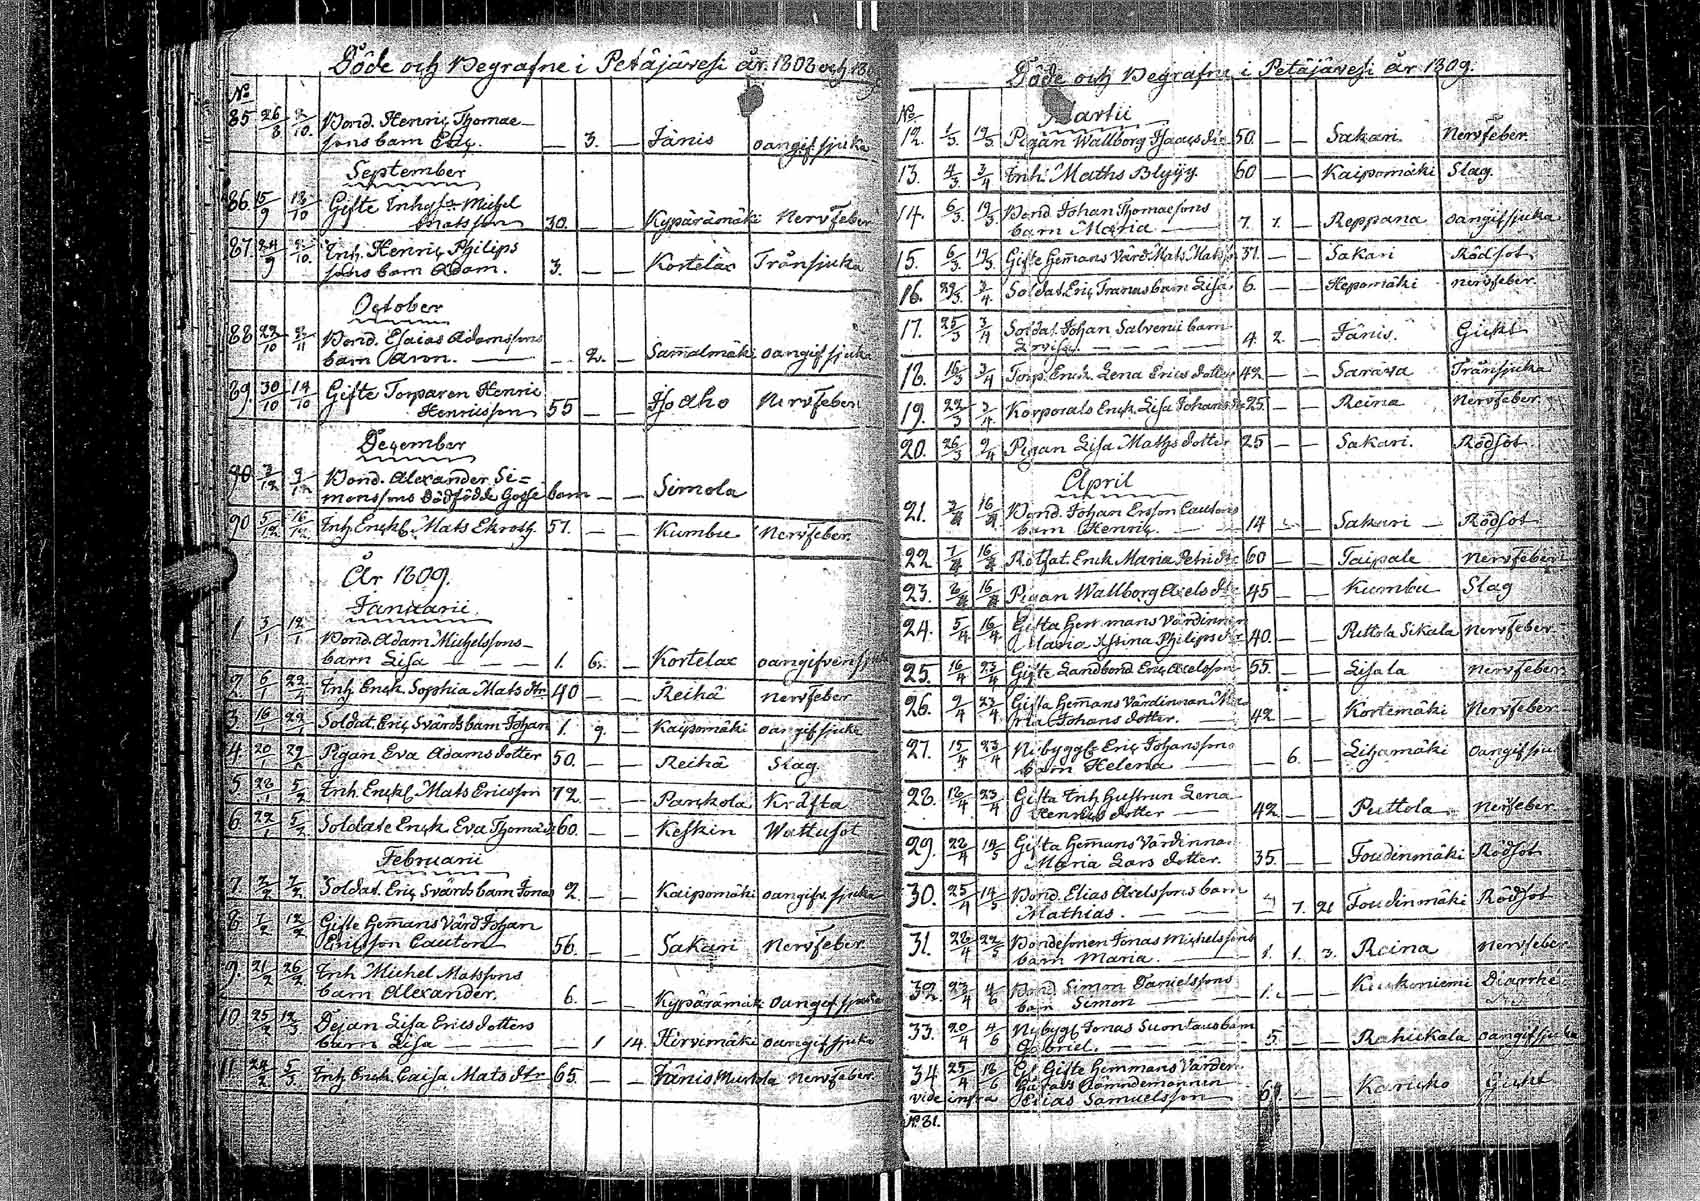 Döde och Begrafne i Petäjävesi år 1808 och 1809
No
85 26/8 2/10. Bond. Henric Thomae-
sons barn Eric. — 3. — Jänis oangif. sjuka
September
86. 15/9 /10 Gifte Inhys. Michel
Matsson 30. — — Kypärämäki Nervfeber
87. 24/9 2/10. Inh. Henric Philips
sons barn Adam. 3. — — Kortelax Trånsjuka
October
88. 22/10 2/11 Bond. Esaias Adamssons
barn Aron. — — 2. — Sammalmäki oangif. sjuka
89. 30/10 14/10 Gifte Torparen Henric
Henricsson 55 — — Iso Aho Nervfeber
December
90 3/12 9/12 Bond. Alexander Si=
monssons Dödfödde Gosse barn — — Simola
90 5/12 16/12 Inh. Enckl. Mats Ekroth. 57. — — Kumbu Nervfeber.
År 1809.
Januarii.
1. 3/1 12/1 Bond. Adam Michelssons
barn Lisa — — — 1. 6. — Kortelax oangifven sjuk
2. 6/1 22/1 Inh. Enck. Sophia Mats dtr 40 — — Reihä nervfeber
3. 16/1 22/1 Soldat. Eric Svärds barn Johan 1. 9. — Kaipomäki oangif. sjuka
4. 20/1 29/1 Pigan Eva Adams dotter 50. — — Reihä Slag.
5. 28/1 5/2 Inh. Enckl. Mats Ericsson 72. — — Parckola Kräfta
6. 22/1 5/2 Soldate Enck. Eva Thomæ d. 60. — — Keskin Wattusot
Februarii
7. 2/2 7/2 Soldat. Eric Svärds barn Jonas 2. — — Kaipomäki oangifv. sjuka
8. 7/2 12/2 Gifte Hemmans Värd Johan
Ericsson Cauton 56. — — Sakari Nervfeber.
9. 21/2 26/2 Inh. Michel Matssons
barn Alexander. 6. — — Kypärämäki oangif. sjuka
10. 25/2 12/3 Dejan Lisa Erics dotters
barn Lisa — — — 1 14. Hirvimäki oangif. sjuka
11. 24/2 5/3 Inh. Enck. Caisa Mats dtr 65. — — Jänis Mustola nervfeber.
Döde och Begrafne i Petäjävesi år 1809.
No
Martii
12. 1/3 19/3 Pigan Wallborg Isaacs dr 50. — — Sakari. Nervfeber.
13. 4/3 3/4 Inh. Maths Blyyy. 60 — — Kaipomäki Slag.
14. 6/3 19/3 Bond. Johan Thomaesons
barn Maria — 7. 7. — Reppana oangif. sjuka
15. 6/3 19/3 Gifte Hemans Värd. Mats Mats 37. — — Sakari Rödsot
16. 29/3 3/4 Soldat. Eric Tranas barn Lisa 6. — — Hepomäki nervfeber.
17. 25/3 3/4 Soldat. Johan Salvenii barn
Lovisa — — — — 4. 2. — Jänis. Gickt
18. 16/3 3/4 Torp. Enck. Lena Erics dotter 42 — — Sarava Trånsjuka
19. 22/3 3/4 Korporals Enck. Lisa Johans d. 25. — — Reina Nervfeber
20. 26/3 9/4 Pigan Lisa Maths dotter 25 — — Sakari. Rödsot
April
21. 3/4 16/4 Bond. Johan Ersson Cautons
barn Henric. — — 14 — — Sakari — Rödsot
22 7/4 16/4 Rotfat. Enck. Maria Petri dr 60 — — Taipale nervfeber
23. 8/4 16/4 Pigan Wallborg Axels dr 45 — — Kumbu Slag
24. 5/4 16/4 Gifta Hemmans Värdinnan
Maria Xstina Philips dr 40. — — Ruttola Sikala Nervfeber
25. 16/4 23/4 Gifte Landbond. Eric Axelsson 55. — — Lisala Nervfeber
26. 9/4 23/4 Gifta Hemans Värdinnan Ma
ria Johans dotter. — 42 — — Kortemäki Nervfeber
27. 15/4 23/4 Nybyggf. Eric Johanssons
barn Helena — — — 6. — Lihamäki Oangif. sju
28. 18/4 23/4 Gifta Inh. Hustrun Lena
Henrics dotter — 42 — — Puttola nervfeber
29. 22/4 14/5 Gifta Hemans Värdinnan
Maria Lars dotter. 35. — — Toudinmäki Rödsot
30. 25/4 14/5 Bond. Elias Axelssons barn
Mathias. — — — 7. 21 Toudinmäki Rödsot
31. 28/4 22/5 Bondesonen Jonas Michelssons
barn Maria. — — 1. 1. 3. Reina nervfeber
32. 23/4 4/6 Bond. Simon Danielssons
barn Simon — — 1. — — Kuckoniemi Diarrhé
33. 20/4 4/6 Nybygf. Jonas Suontaus barn
Gabriel. — — — 5. — — Rahickala oangif. sjuka
34 25/4 18/6 Gifte Hemmans Värden
Nämndemannen
vide infra Elias Samuelsson 69. — — Karicko Gickt
No 31.